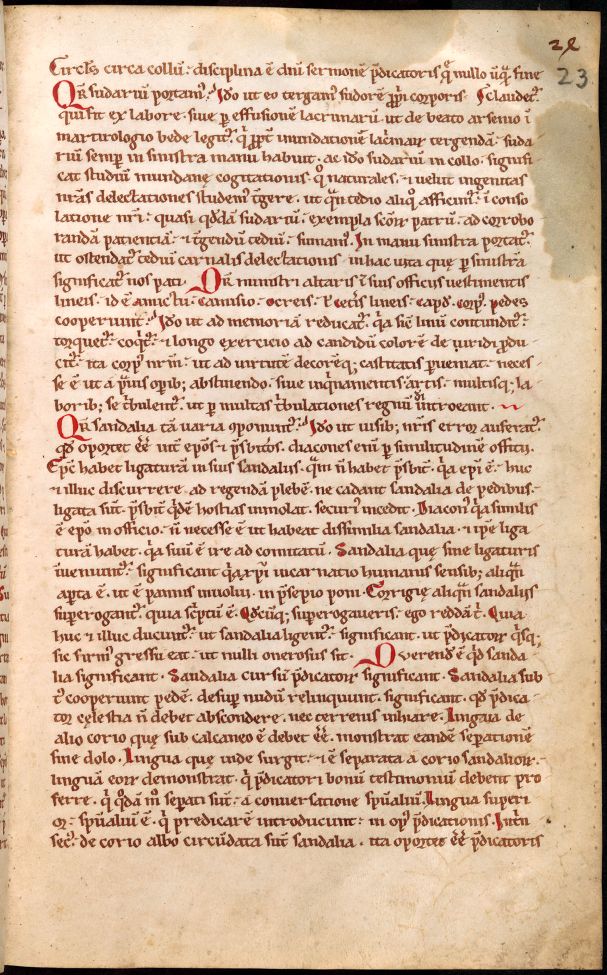 22
23
Circl's circa collū· disciplina ē dn̄i sermonē p̄dicatoris nullo sine
Qr̄ sudariū portam᷒· Ido ut eo tergam᷒ sudorē corporis·
qui fit ex labore· siue ꝑ effusionē lacrimarū· ut de beato arsenio ī
martirologio bede legit᷒· inundationē tergendā· suda
riū semꝑ in sinistra manu habuit· ac ido sudariū in collo· signifi
cat studiū mundanę cogitationis· naturales· ⁊ uelut ingenitas
nr̄as delectationes ut tedio affici ī conso
latione nr̄i· quasi sudariū· exempla scōꝝ patrū· ad corrobo
randā patientiā· ⁊ tediū· sumam᷒· In manu sinistra portat᷒·
ut ostendat᷒ tediū carnalis delectationis· in hac uita que ꝑ sinistrā
significat᷒ nos pati· Qr̄ ministri altaris ī suis officiis uestimentis
lineis· id ē amictu· camisio· ocreis· lineis· pedes
cooperiunt᷒· Ido ut ad memoriā reducat᷒· q̄a sic linū contundit᷒·
torquet᷒· coq̄t᷒· ⁊ longo exercicio ad candidū colorē de uiridi ꝓdu
cit᷒· ita corp᷒ nr̄m· ut ad uirtutē decorēq; castitatis ꝑueniat· neces
se ē ut a opib; abstinendo· siue inq̄namentis artis· multisq; la
borib; se t̄bulent᷒· ut ꝑ multas t̄bulationes regnū introeant·
Qr̄ sandalia tā uaria oponunt᷒· Ido ut uisib; nr̄is error auferat᷒·
qd̄ oportet ēē ep̄os ⁊ diacones enī ꝑ similitudinē officii·
Ep̄c habet ligaturā in suis sandaliis· n̄ habet q̄a ep̄i ē· huc
⁊ illuc discurrere· ad regendā plebē· ne cadant sandalia de pedibus·
ligata sūt· hostias immolat· securi᷒ incedit· Diacon᷒ q̄a similis
ē ep̄o in officio· n̄ necesse ē ut habeat dissimilia sandalia· ⁊ ipse liga
turā habet· q̄a suū ē ire ad comitatū· Sandalia que sine ligaturis
inueniunt᷒· significant q̄a xp̄i incarnatio humanis sensib; aliqn̄
aparta ē· ut ē pannis inuolui· in p̄sepio poni· Corrigię aliqn̄ sandaliis
suꝑerogant᷒· quia sc̄ptū ē· Qd̄cūq; suꝑerogaueris· ego reddā t̄· Quia
huc ⁊ illuc ducunt᷒· ut sandalia ligent᷒· significant· ut p̄dicatoꝝ q̄sq;
sic firm᷒ gressu eat· ut nulli onerosus sit· Querend᷒ ē qd̄ sanda
lia significant· Sandalia cursū p̄dicatoꝝ significant· Sandalia sub
t᷒ cooperiunt pedē· desuꝑ nudū relinquunt· significant· qd̄ p̄dica
tor cęlestia n̄ debet abscondere· nec terrenis inhiare· Lingua de
alio corio quę sub calcaneo ē debet ēē· monstrat eandē seꝑationē
sine dolo· Lingua quę inde surgit· ⁊ ē separata a corio sandalioꝝ·
linguā eoꝝ demonstrat· q̄ p̄dicatori bonū testimoniū debent pro
ferre· q̄ qōdā m̄ seꝑati sūt· a conuersatione spūaliū· Lingua superi
or· spūaliū ē· q̄ predicarē introducunt· in op᷒ p̄dicationis· Intrī
sec᷒· de corio albo circūdata sūt sandalia· ita oportet ēē p̄dicatoris